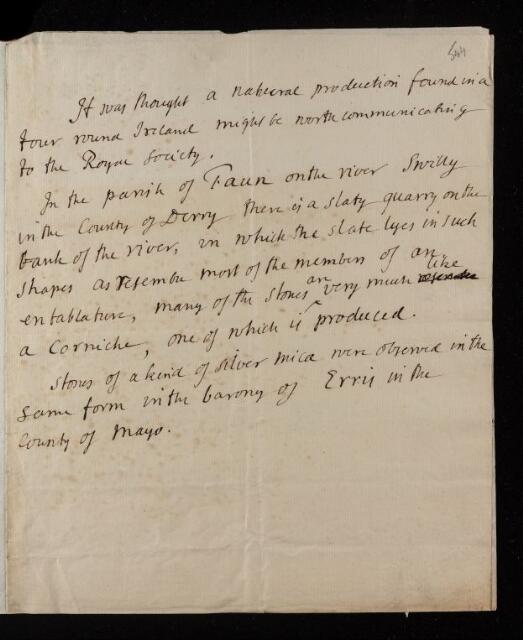 544
It was thought a natural production found in a
tour round Ireland might be worth communicating
to the Royal Society.
In the parish of Faun on the river Swilly
in the County of Derry there is a slaty quarry on the
bank of the river, in which the slate lyes in such
shapes as resemble most of the members of an
entablature, many of the stones are very much like
a Corniche, one of which is produced.
Stones of a kind of silver mica were observed in the
same form in the barony of Erris in the
County of Mayo.